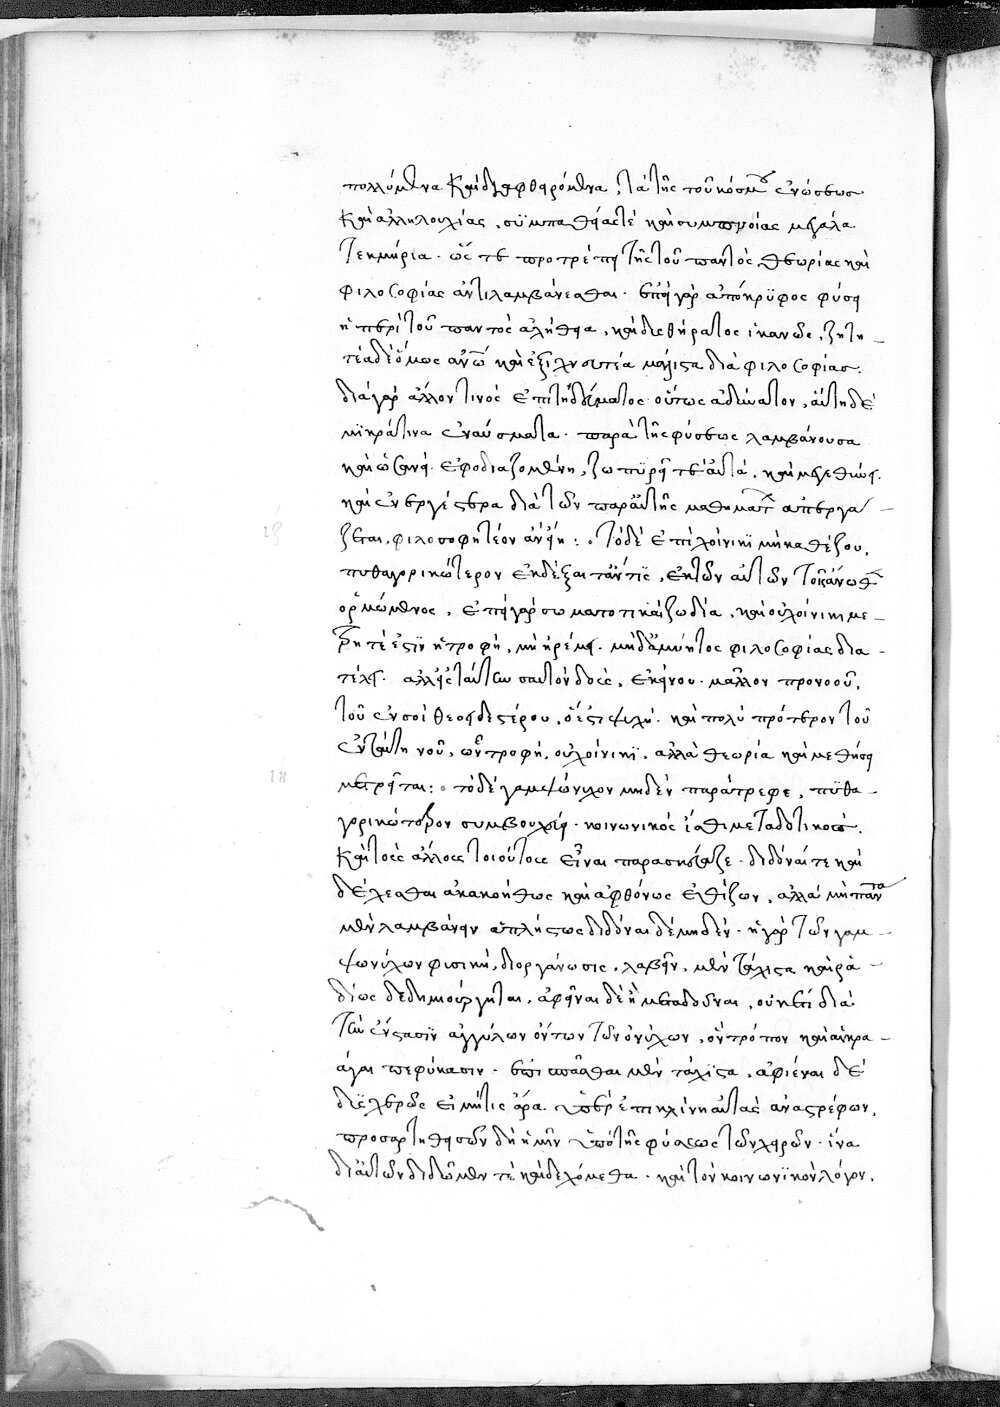 πολλύμενα καὶ διαφθαρόμενα, τὰ τῆς τοῦ κόσμου ἑνώσεως
καὶ ἀλληλουχίας, συμπαθείας τὲ καὶ συμπνοίας μεγάλα
τεκμήρια. ὥς τε προτρέπει τῆς τοῦ παντὸς θεωρίας καὶ
φιλοσοφίας ἀντιλαμβάνεσθαι. ἐπεὶ γὰρ ἀπόκρυφος φύσει
ἡ περὶ τοῦ παντὸς ἀλήθεια, καὶ δυσθήρατος ἱκανῶς, ζητη-
τέα δὲ ὅμως ἀνθρώπῳ καὶ ἐξιχνευτέα μάλιστα διὰ φιλοσοφίας.
διὰ γὰρ ἄλλου τινὸς ἐπιτηδεύματος οὕτως ἀδύνατον, αὕτη δὲ
μικρά τινα ἐναύσματα. παρὰ τῆς φύσεως λαμβάνουσα
καὶ ὡσανεὶ ἐφοδιαζομένη, ζωπυρεῖ τε αὐτὰ, καὶ μεγεθύνει.
καὶ ἐνεργέστερα διὰ τῶν παρ' αὐτῆς μαθημάτων ἀπεργά-
ζεται, φιλοσοφητέον ἂν εἴη: τὸ δὲ ἐπὶ χοίνικι μὴ καθέζου,
πυθαγορικώτερον ἐκδέξαιτ' ἄν τις, ἐκ τῶν αὐτῶν τοῖς ἄνωθεν
ὁρμώμενος, ἐπεὶ γὰρ σωματοποιεῖται ζῶα, καὶ οὐ χοίνικι με-
τρητέ ἐστιν ἡ τροφή, μὴ ἠρέμει. μηδ' ἀμύητος φιλοσοφίας δια-
τέλει. ἀλλ' εἰς ταύτην σαυτὸν δοὺς, ἐκείνου μᾶλλον προνοοῦ,
τοῦ ἐν σοὶ θεοειδεστέρου, ὅ ἐστι ψυχή. καὶ πολὺ πρότερον τοῦ
ἐν ταύτῃ νοῦ, ὧν τροφή, οὐ χοίνικι, ἀλλὰ θεωρία καὶ μαθήσει
μετρεῖται: τὸ δὲ γαμψώνυχον μηδὲν παράτρεφε, πυθα-
γορικώτερον συμβουλεύει. κοινωνικὸς ἴσθι μεταδοτικός.
καὶ τοὺς ἄλλους τοιούτους εἶναι παρασκεύαζε. διδόναι τε καὶ
δέχεσθαι ἀκακοήθως καὶ ἀφθόνως ἐθίζων, ἀλλὰ μὴ πάντα
μὲν λαμβάνειν ἀπλήστως διδόναι δὲ μηδέν. ἡ γὰρ τῶν γαμ-
ψωνύχων φυσικὴ διοργάνωσις, λαβεῖν μὲν τάχιστα καὶ ῥα-
δίως δεδημιούργηται, ἀφεῖναι δὲ ἢ μεταδοῦναι, οὐκέτι διὰ
τὴν ἔνστασιν ἀγκύλων ὄντων τῶν ὀνύχων, ὃν τρόπον καὶ αἱ κρα-
άγαι πεφύκασιν. ἐπισπᾶσθαι μὲν τάχιστα, ἀφιέναι δὲ
δυσχερῶς εἰ μή τις ἄρα ὑπερεπικλίνῃ αὐτὰς ἀναστρέφων,
προσαρτηθεισῶν δὴ ἡμῖν ὑπὸ τῆς φύσεως τῶν χειρῶν. ἵνα
δι' αὐτῶν διδῶμέν τε καὶ δεχόμεθα. καὶ τὸν κοινωνικὸν λόγον,